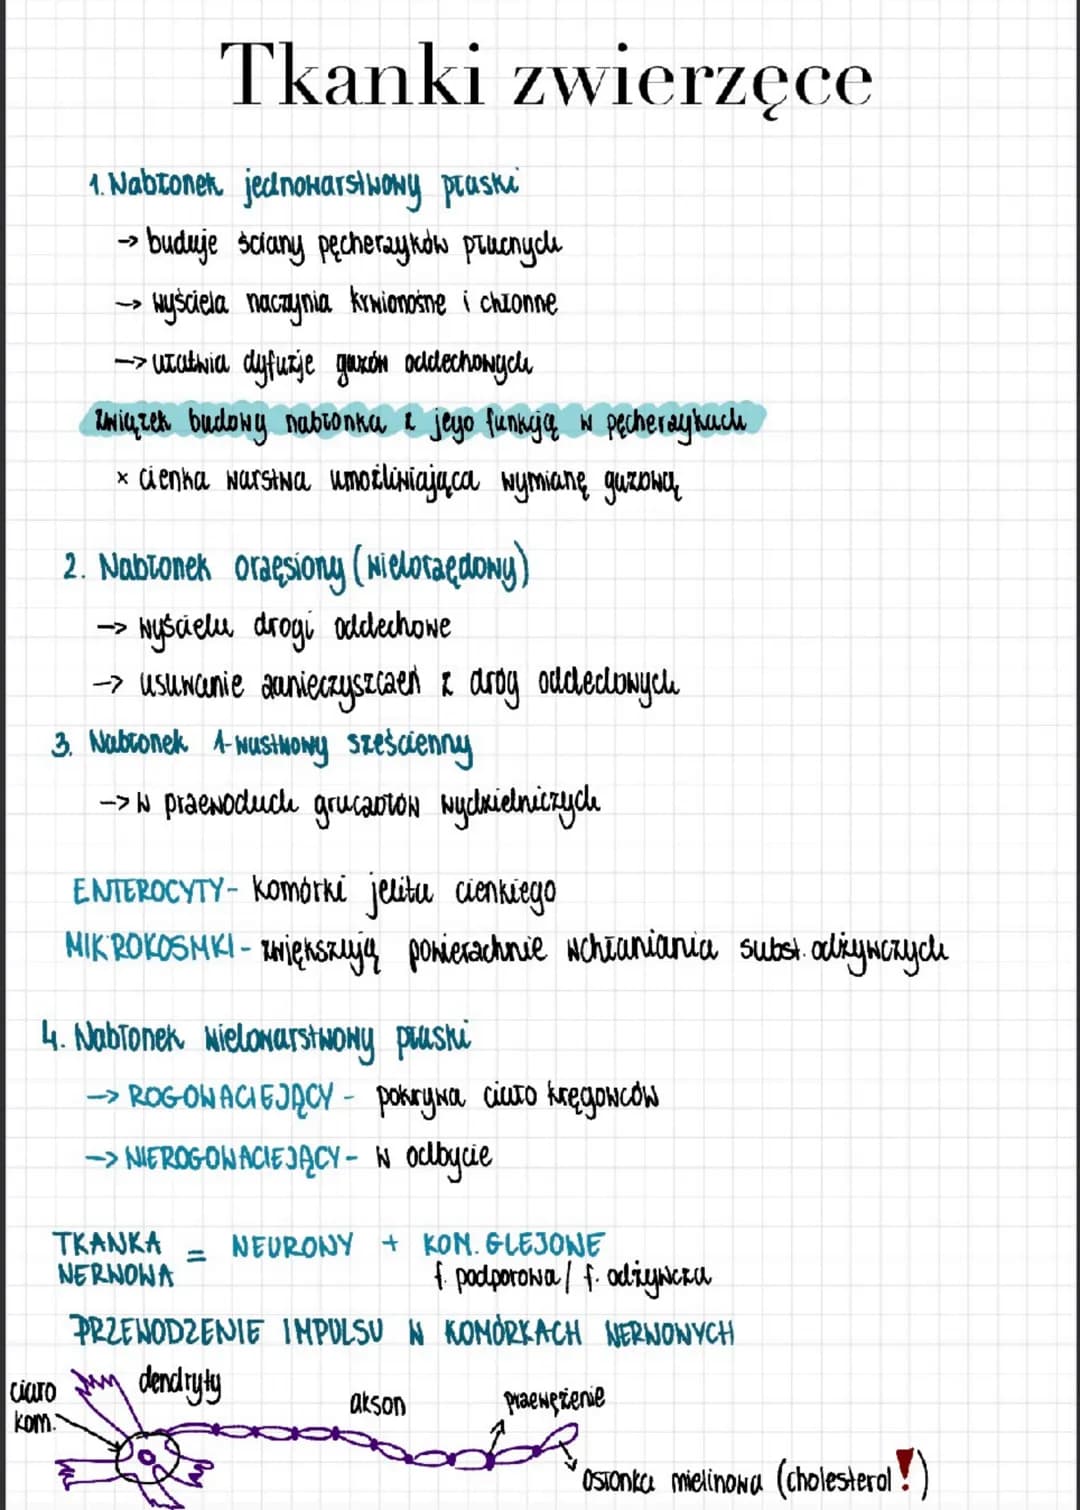 Tkanki zwierzęce
1. Nabłonek jednowarstwowy płaski
→ buduje ściany pęcherzyków płucnych
→ wyściela naczynia krwionośne i chłonne
→ ułatwia dyfuzje gazów oddechowych
Związek budowy nabłonka z jego funkcją w pęcherzykach
x cienka warstwa umożliwiająca wymianę gazową
2. Nabłonek orzęsiony (wielorzędowy)
→ wyściela drogi oddechowe
→ usuwanie zanieczyszczeń z dróg oddechowych
3. Nabłonek 1-warstwowy sześcienny
→ w przewodach gruczołów wydzielniczych
ENTEROCYTY - komórki jelita cienkiego
MIKROKOSMKI - zwiększają powierzchnie wchłaniania subst. odżywczych
4. Nabłonek wielowarstwowy płaski
→ ROGOWACIEJĄCY - pokrywa ciało kręgowców
→ NIEROGOWACIEJĄCY - w odbycie
TKANKA NERWOWA = NEURONY + KOM. GLEJOWE
f. podporowa / f. odżywcza
PRZEWODZENIE IMPULSU W KOMÓRKACH NERWOWYCH
ciało kom.
dendryty
akson
przewężenie
osłonka mielinowa (cholesterol!)